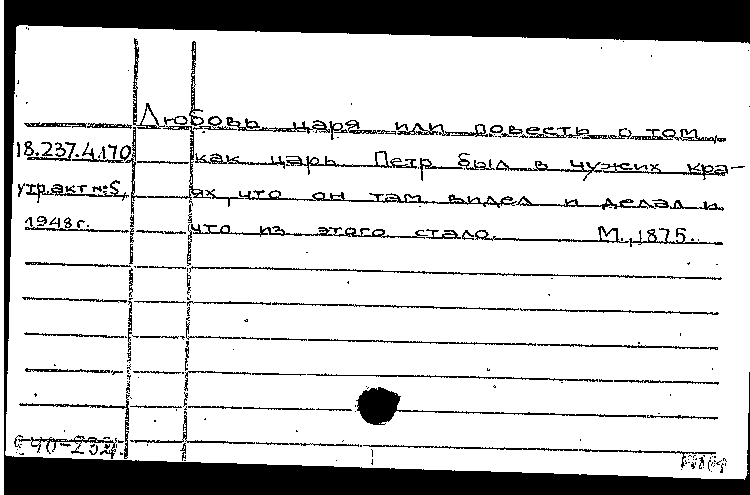 Любовь царя или повесть о том,
18.237.4.170 как царь Петр был в чужих кра-
утр.акт №5, ях, что он там видел и делал и
1948 г. что из этого стало. М., 1875.